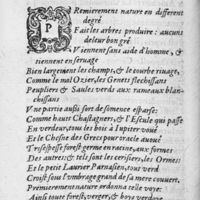 PRemierement nature en different
degré
Fait les arbres produire : aucuns
de leur bon gré
Viennent sans aide d'homme, &
tiennent en servage
Bien largement les champs, & le courbe rivage,
Comme le mol Ozier, les Genets flechissans
Peupliers & Saules verds aux rameaux blan-
chissans
Vne partie aussi sort de semence esparse:
Comme hauts Chastagners, & l'Escule qui passe
En verdeur, tous les bois à Iupiter voué
Et le Chesne des Grecs pour oracle avoué
Tresespesse forest germe en racine, aux formes
Des autres: & tels sont les cerisiers, les Ormes:
Et le petit Laurier Parnasien, tout verd
Croist sous l'ombrage grand de sa mere couvert.
Premierement nature ordonna telle voye:
Ainsi toute forest, verger, & boys verdoye